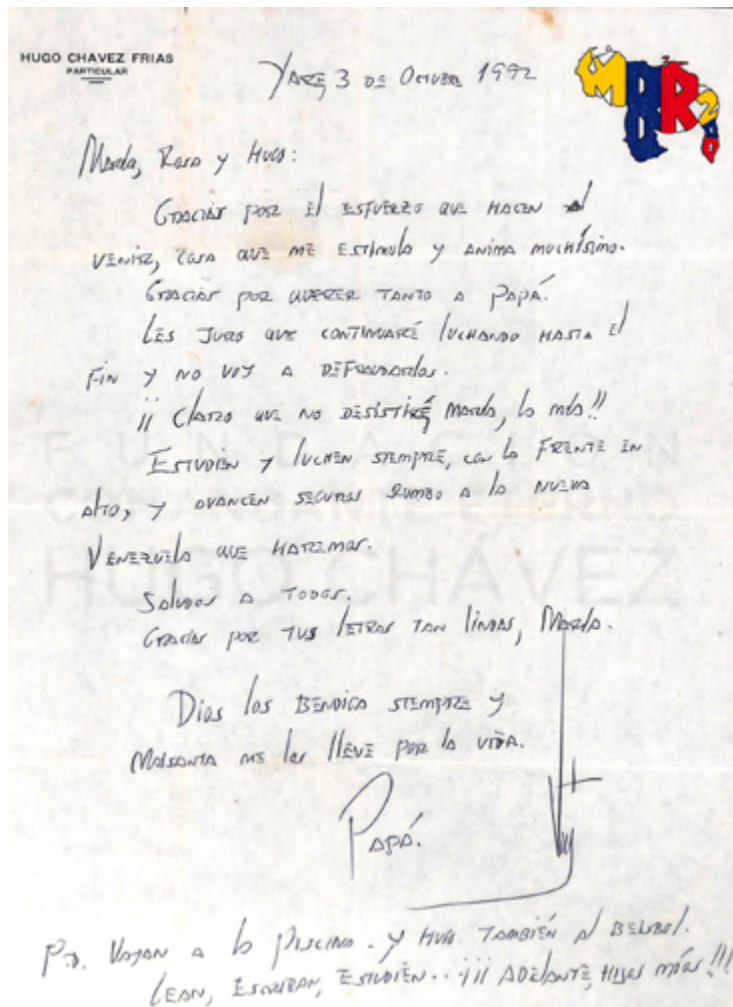 HUGO CHAVEZ FRIAS
PARTICULAR
YARE, 3 DE OCTUBRE 1992
MBR 200
María, Rosa y Hugo:
Gracias por el esfuerzo que hacen al
venir, cosa que me estimula y anima muchísimo.
Gracias por querer tanto a Papá.
Les juro que continuaré luchando hasta el
fin y no voy a defraudarlos.
¡¡ Claro que no desistiré, María, lo más!!
Estudien y luchen siempre, con la frente en
alto, y avancen seguros rumbo a la nueva
Venezuela que haremos.
Saludos a todos.
Gracias por tus letras tan lindas, María.
Dios los bendiga siempre y
Maisanta me los lleve por la vida.
Papá.
PD. Vayan a la piscina. y Hugo también al beisbol.
Lean, escriban, estudien.. ¡¡¡ Adelante, hijos míos!!!
FUNDACIÓN
COMANDANTE ETERNO
HUGO CHÁVEZ